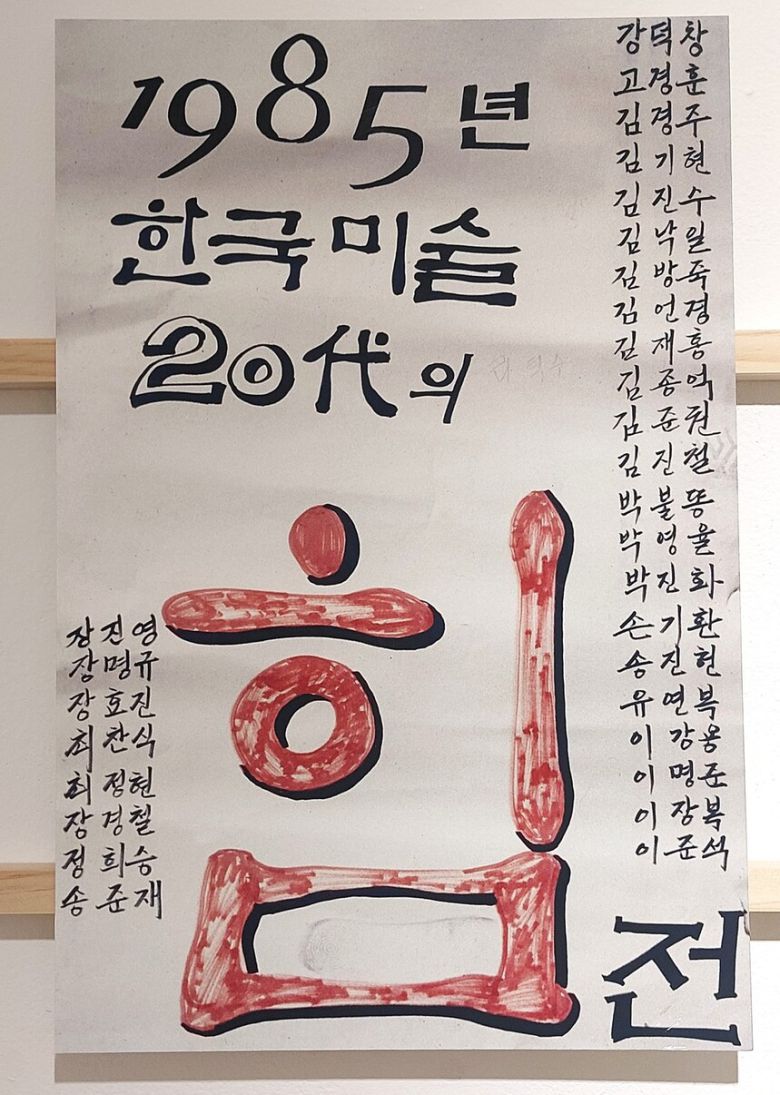 1985년
한국미술
20代의
힘
전
강덕창
고경훈
김경주
김기현
김진수
김낙일
김방죽
김언경
김재홍
김종억
김준권
김진철
박불똥
박영율
박진화
손기환
송진현
유연복
이강용
이명준
이장복
이준석
장진영
장명규
장효진
최찬식
최정현
장경철
정희승
송준재